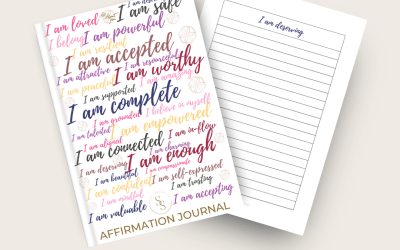 I am safe
I am loved
I belong I am powerful
I am resilient
I am accepted
I am attractive I am resourceful
I am worthy
I am peaceful I am amazing
I am supported
I am complete
I am grounded I believe in myself
I am talented
I am empowered
I am aligned
I am connected I am in-flow
I am charming
I am deserving I am enough
I am beautiful I am compassionate
I am confident I am self-expressed
I am mindful I am trusting
I am valuable I am accepting
S S
AFFIRMATION JOURNAL
I am deserving